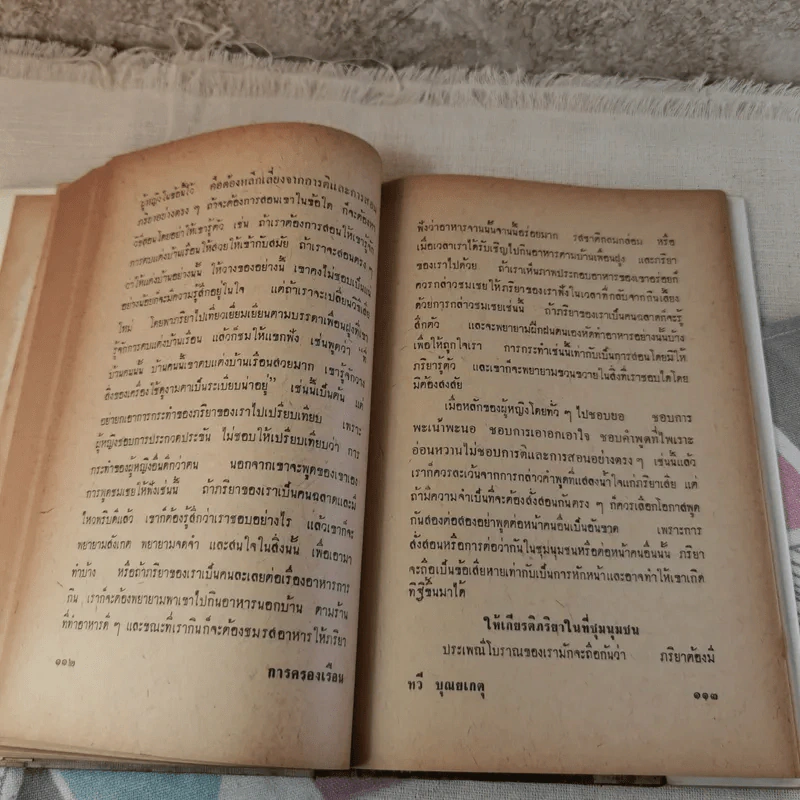 ผู้หญิงในข้อนี้ไว้ คือต้องหลีกเลี่ยงจากการติและการสอน
ภริยาอย่างตรง ๆ ถ้าจะต้องการสอนเขาในข้อใด ก็จะต้องหา
วิธีสอนโดยอย่าให้เขารู้ตัว เช่น ถ้าเราต้องการสอนให้เขารู้จัก
การตบแต่งบ้านเรือนให้สวยให้เข้ากับสมัย ถ้าเราจะสอนตรง ๆ
ว่าให้แต่งบ้านอย่างนั้น ให้วางของอย่างนี้ เขาคงไม่ชอบเป็นแน่
อย่างน้อยก็จะมีความรู้สึกอยู่ในใจ แต่ถ้าเราจะเปลี่ยนวิธีเสีย
ใหม่ โดยพาภริยาไปเที่ยวเยี่ยมเยียนตามบรรดาเพื่อนฝูงที่เขา
รู้จักการตบแต่งบ้านเรือน แล้วก็ชมให้แขกฟัง เช่นพูดว่า “ที่
บ้านคนนั้น บ้านคนนี้เขาตบแต่งบ้านเรือนสวยมาก เขารู้จักวาง
สิ่งของเครื่องใช้ดูงามตาเป็นระเบียบน่าอยู่” เช่นนี้เป็นต้น แต่
อย่ายกเอาการกระทำของภริยาของเราไปเปรียบเทียบ เพราะ
ผู้หญิงชอบการประกวดประขัน ไม่ชอบให้เปรียบเทียบว่า การ
กระทำของผู้หญิงอื่นดีกว่าตน นอกจากเขาจะพูดของเขาเอง
การพูดชมเชยให้ฟังเช่นนี้ ถ้าภริยาของเราเป็นคนฉลาดและมี
ไหวพริบดีแล้ว เขาก็ต้องรู้สึกว่าเราชอบอย่างไร แล้วเขาก็จะ
พยายามสังเกต พยายามจดจำ และสนใจในสิ่งนั้น เพื่อเอามา
ทำบ้าง หรือถ้าภริยาของเราเป็นคนละเลยต่อเรื่องอาหารการ
กิน เราก็จะต้องพยายามพาเขาไปกินอาหารนอกบ้าน ตามร้าน
ที่ทำอาหารดี ๆ และขณะที่เรากินก็จะต้องชมรสอาหารให้ภริยา
๑๑๒
การครองเรือน
ฟังว่าอาหารจานนั้นจานนี้อร่อยมาก รสชาติกลมกล่อม หรือ
เมื่อเวลาเราได้รับเชิญไปกินอาหารตามบ้านเพื่อนฝูง และภริยา
ของเราไปด้วย ถ้าเราเห็นภาพประกอบอาหารของเขาอร่อยก็
ควรกล่าวชมเชยให้ภริยาของเราฟังในเวลาที่กลับจากกินเลี้ยง
ด้วยการกล่าวชมเชยเช่นนี้ ถ้าภริยาของเราเป็นคนฉลาดก็จะรู้
สึกตัว และจะพยายามฝึกฝนตนเองหัดทำอาหารอย่างนั้นบ้าง
เพื่อให้ถูกใจเรา การกระทำเช่นนี้เท่ากับเป็นการสอนโดยมิให้
ภริยารู้ตัว และเขาก็จะพยายามขวนขวายในสิ่งที่เราชอบใดโดย
มิต้องสงสัย
เมื่อหลักของผู้หญิงโดยทั่ว ๆ ไปชอบยอ ชอบการ
พะเน้าพะนอ ชอบการเอาอกเอาใจ ชอบคำพูดที่ไพเราะ
อ่อนหวานไม่ชอบการติและการสอนอย่างตรง ๆ เช่นนี้แล้ว
เราก็ควรละเว้นจากการกล่าวคำพูดที่แสลงน้ำใจแก่ภริยาเสีย แต่
ถ้ามีความจำเป็นที่จะต้องสั่งสอนกันตรง ๆ ก็ควรเลือกโอกาสพูด
กันสองต่อสองอย่าพูดต่อหน้าคนอื่นเป็นอันขาด เพราะการ
สั่งสอนหรือการต่อว่ากันในชุมนุมชนหรือต่อหน้าคนอื่นนั้น ภริยา
จะถือเป็นข้อเสียหายเท่ากับเป็นการหักหน้าและอาจทำให้เขาเกิด
ทิฐิขึ้นมาได้
ให้เกียรติภริยาในที่ชุมนุมชน
ประเพณีโบราณของเรามักจะถือกันว่า ภริยาต้องมี
ทวี บุณยเกตุ
๑๑๓